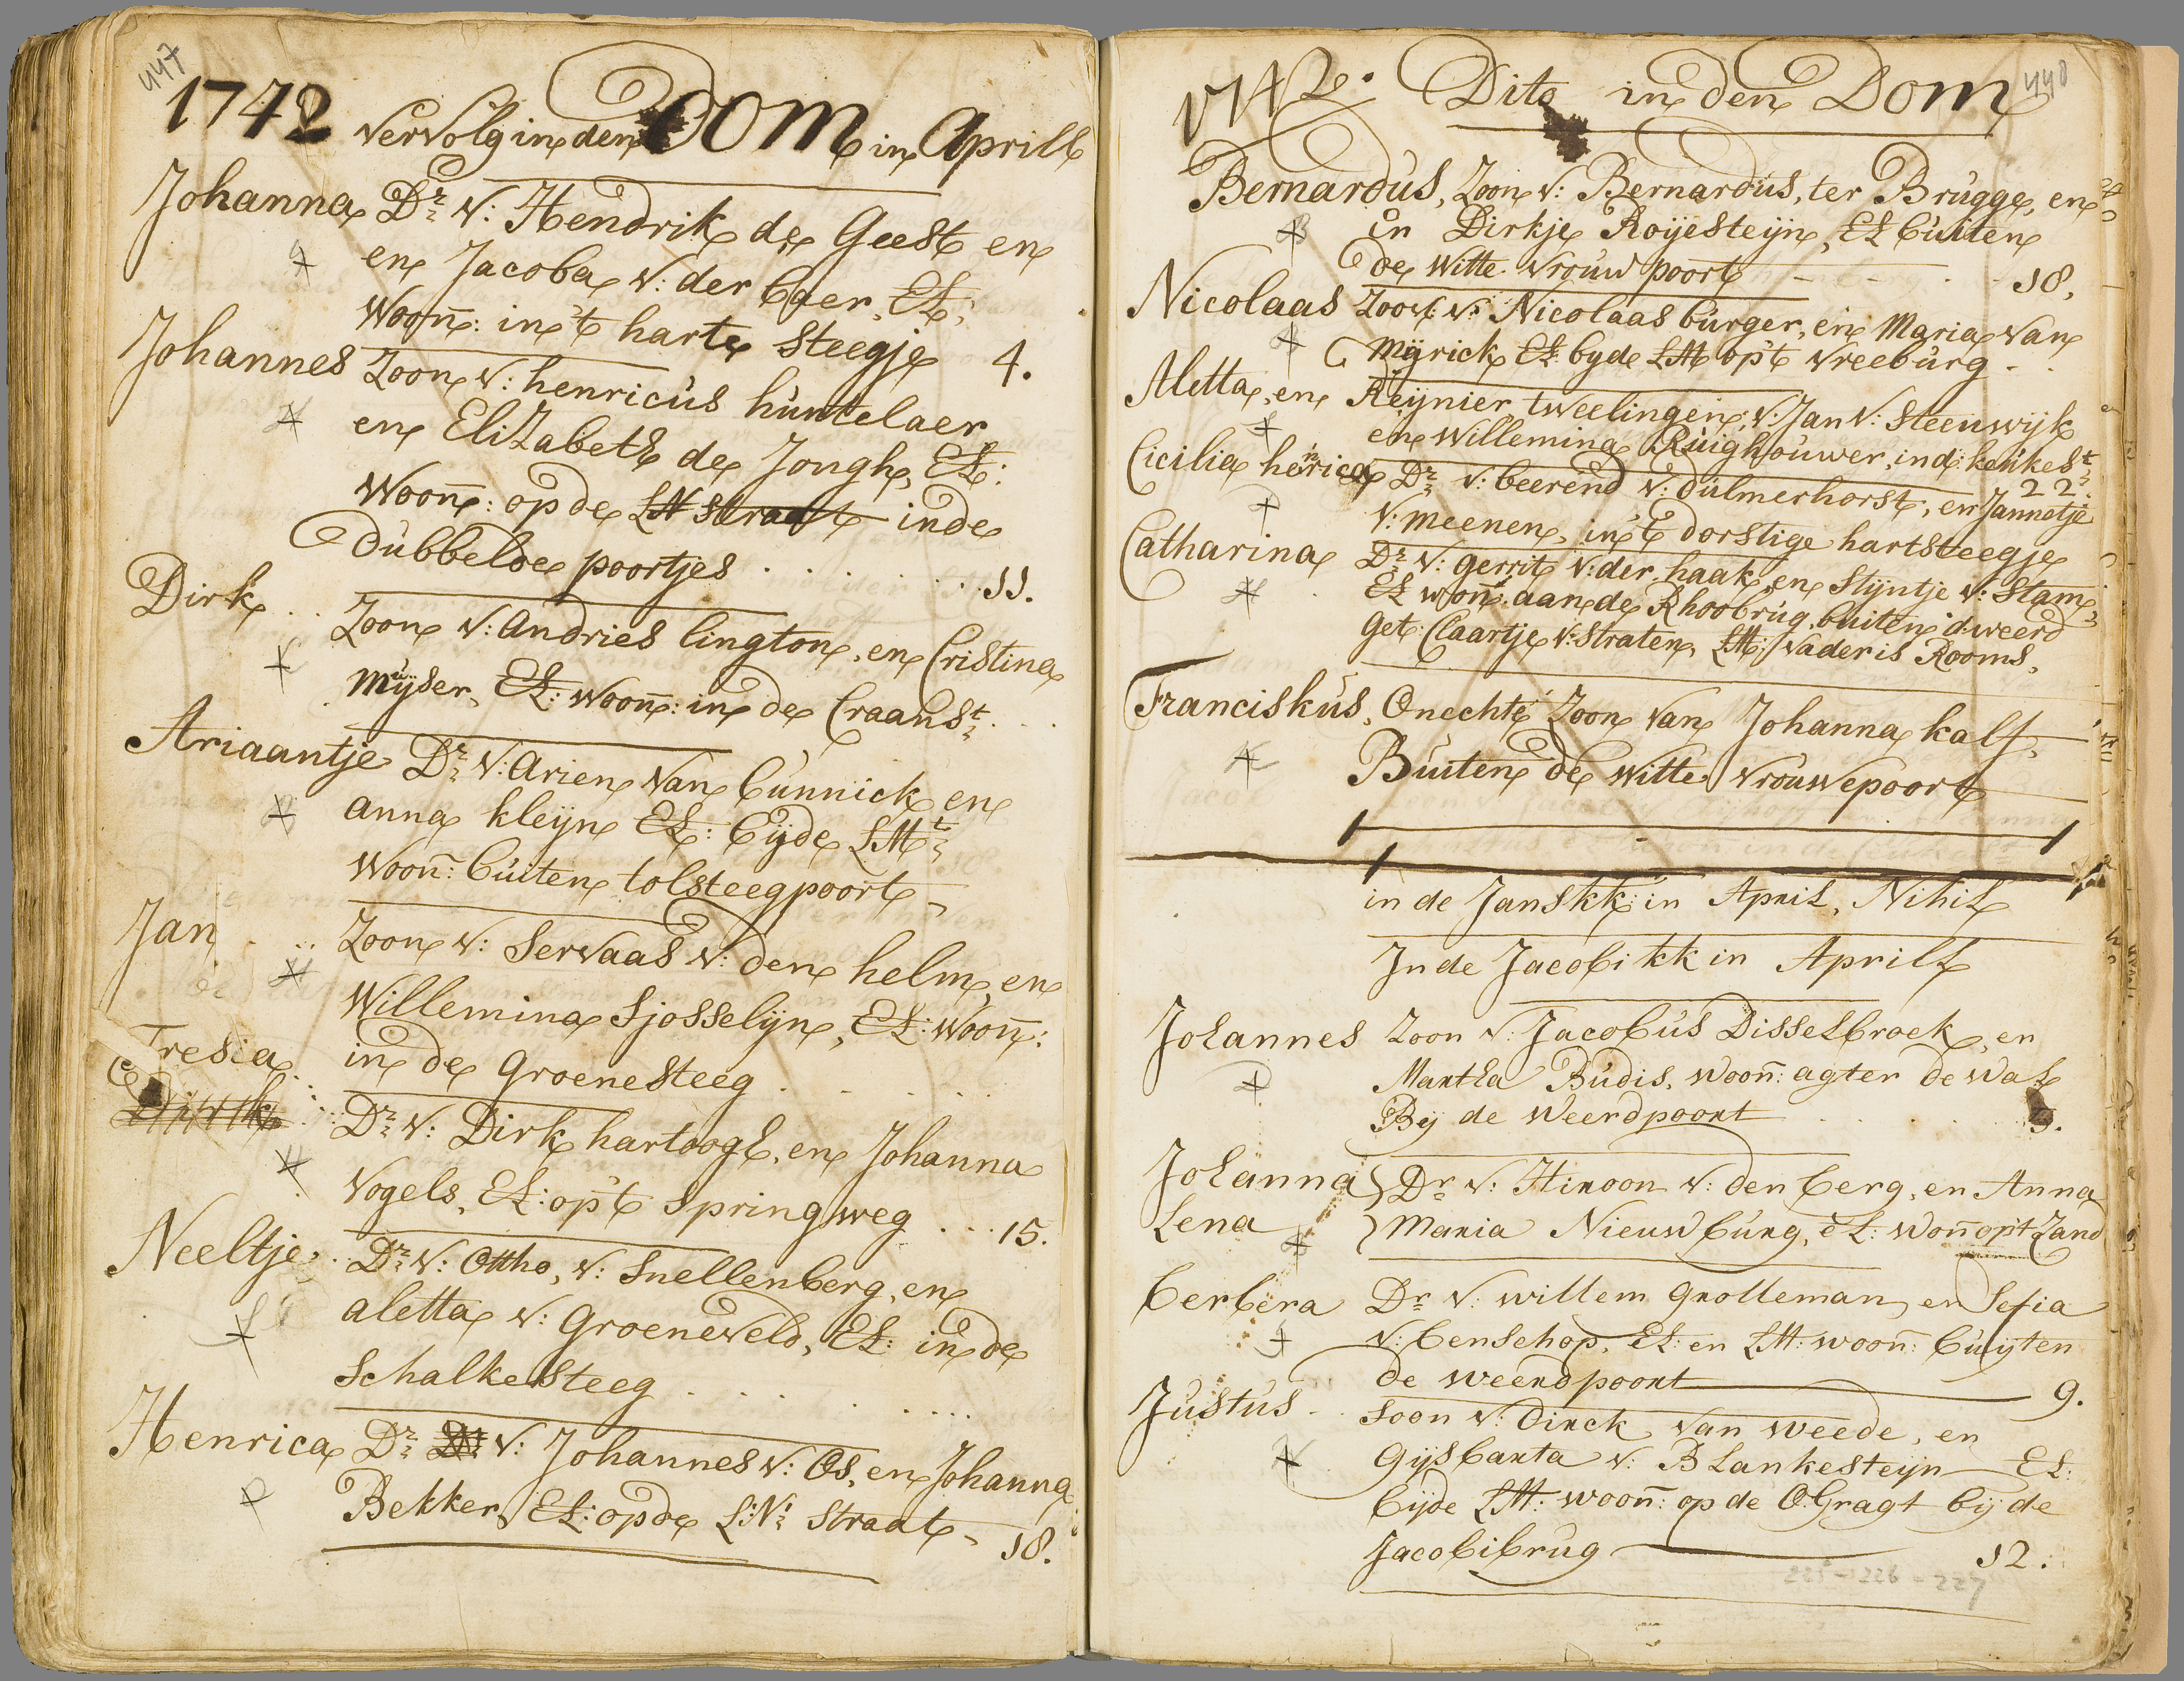 447
1742 vervolg in den DOM in Aprill
Johanna Dr v: Hendrik de Geest en
en Jacoba v: der baer, EL,
Woon: in 't harte steegje 4.
Johannes Zoon v: henricus huntelaer
en EliZabeth de Jongh, EL:
Woon: op de LN straat in de
dubbelde poortjes . . . . . . 11.
Dirk . . Zoon v: andries lington, en Cristina
Muijser, EL: woon: in de Craanst
Ariaantje Dr v: arien van bunnick en
anna kleijn EL: beijde LMt
Woon: buiten tolsteegpoort
Jan . . Zoon v: Servaas v: den helm, en
Willemina Sjosselijn, EL: Woon:
in de groenesteeg . . . .
Tresia
Dirk . . Dr v: Dirk hartoogh, en Johanna
Vogels, EL: op 't springweg . . . 15.
Neeltje . . Dr v: Ottho, v: Snellenberg, en
aletta v: Groeneveld, EL: in de
Schalkesteeg . . . . . .
Henrica Dr Dr v: Johannes v: Os, en Johanna
Bekker, EL: op de L:N: straat, 18.
448
1742. Dito in den Dom
Bernardus, Zoon v: Bernardus, ter Brugge, en
en Dirkje Roijesteijn, EL buiten
de witte vrouw poort - - - 18,
Nicolaas Zoon v: Nicolaas burger, en Maria van
Mijrick EL: byde LM op 't vreeburg - .
Aletta, en Reijnier tweelingen, v: Jan v: Steenwijk
en Willemina Ruighouwer, in d: keukest
22.
Cicilia henrica Dr v: beerend v: dulmerhorst, en Jannetje
v: meenen, in 't dorstige hartsteegje
Catharina Dr v: gerrit v: der haak en Stijntje v: Stam,
EL won: aan de Rhoobrug, buiten d: weerd
Get: Claartje v: Straten, LM: vader is Rooms,
Franciskus, Onechte Zoon van Johanna kalf,
Buiten de witte vrouwepoort
in de Janskk: in April, Nihil
In de Jacobi kk in Aprill
Johannes Zoon v: Jacobus Disselbroek, en
Martha Budis, woon: agter de wal
Bij de Weerdpoort . . . . 5.
Johanna } Dr v: Hiroon v: den berg, en Anna
Lena } Maria Nieuwburg, EL: won op 't Zand
berbera Dr v: willem grolleman, en Sefia
v: benschop, EL: en LM: woon: buijten
de weerdpoort 9.
Justus . . Soon v: dirck van weede, en
gijsbarta v: Blankesteijn EL:
bijde LM: woon: op de O:Gragt bij de
Jacobibrug 12.
225-226-227